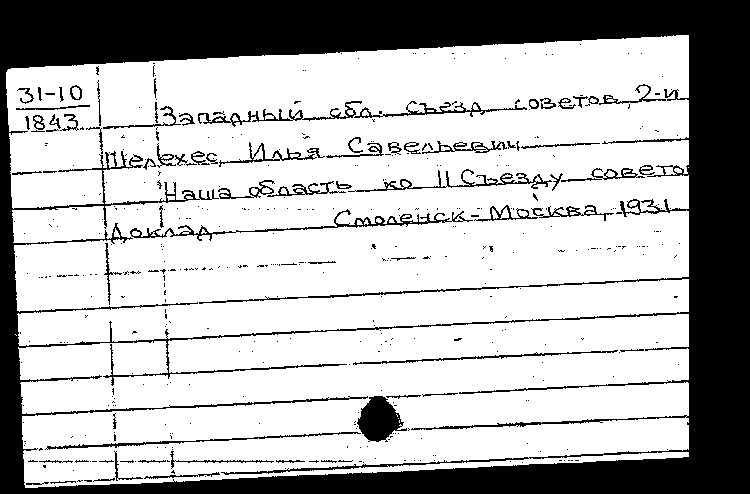 31-10
1843
Западный обл. съезд советов, 2-й
Шелехес, Илья Савельевич
Наша область ко II Съезду совето
Доклад Смоленск-Москва, 1931